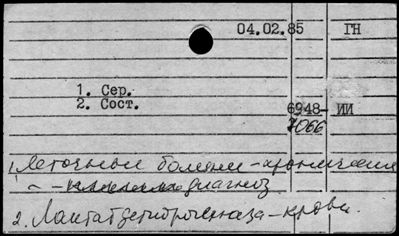 04.02.85 ГН
1. Сер.
2. Сост.
6948- ИИ
7066
1. Легочные болезни - хронические
- диагноз
2. Лактатдегидрогеназа - кровь.